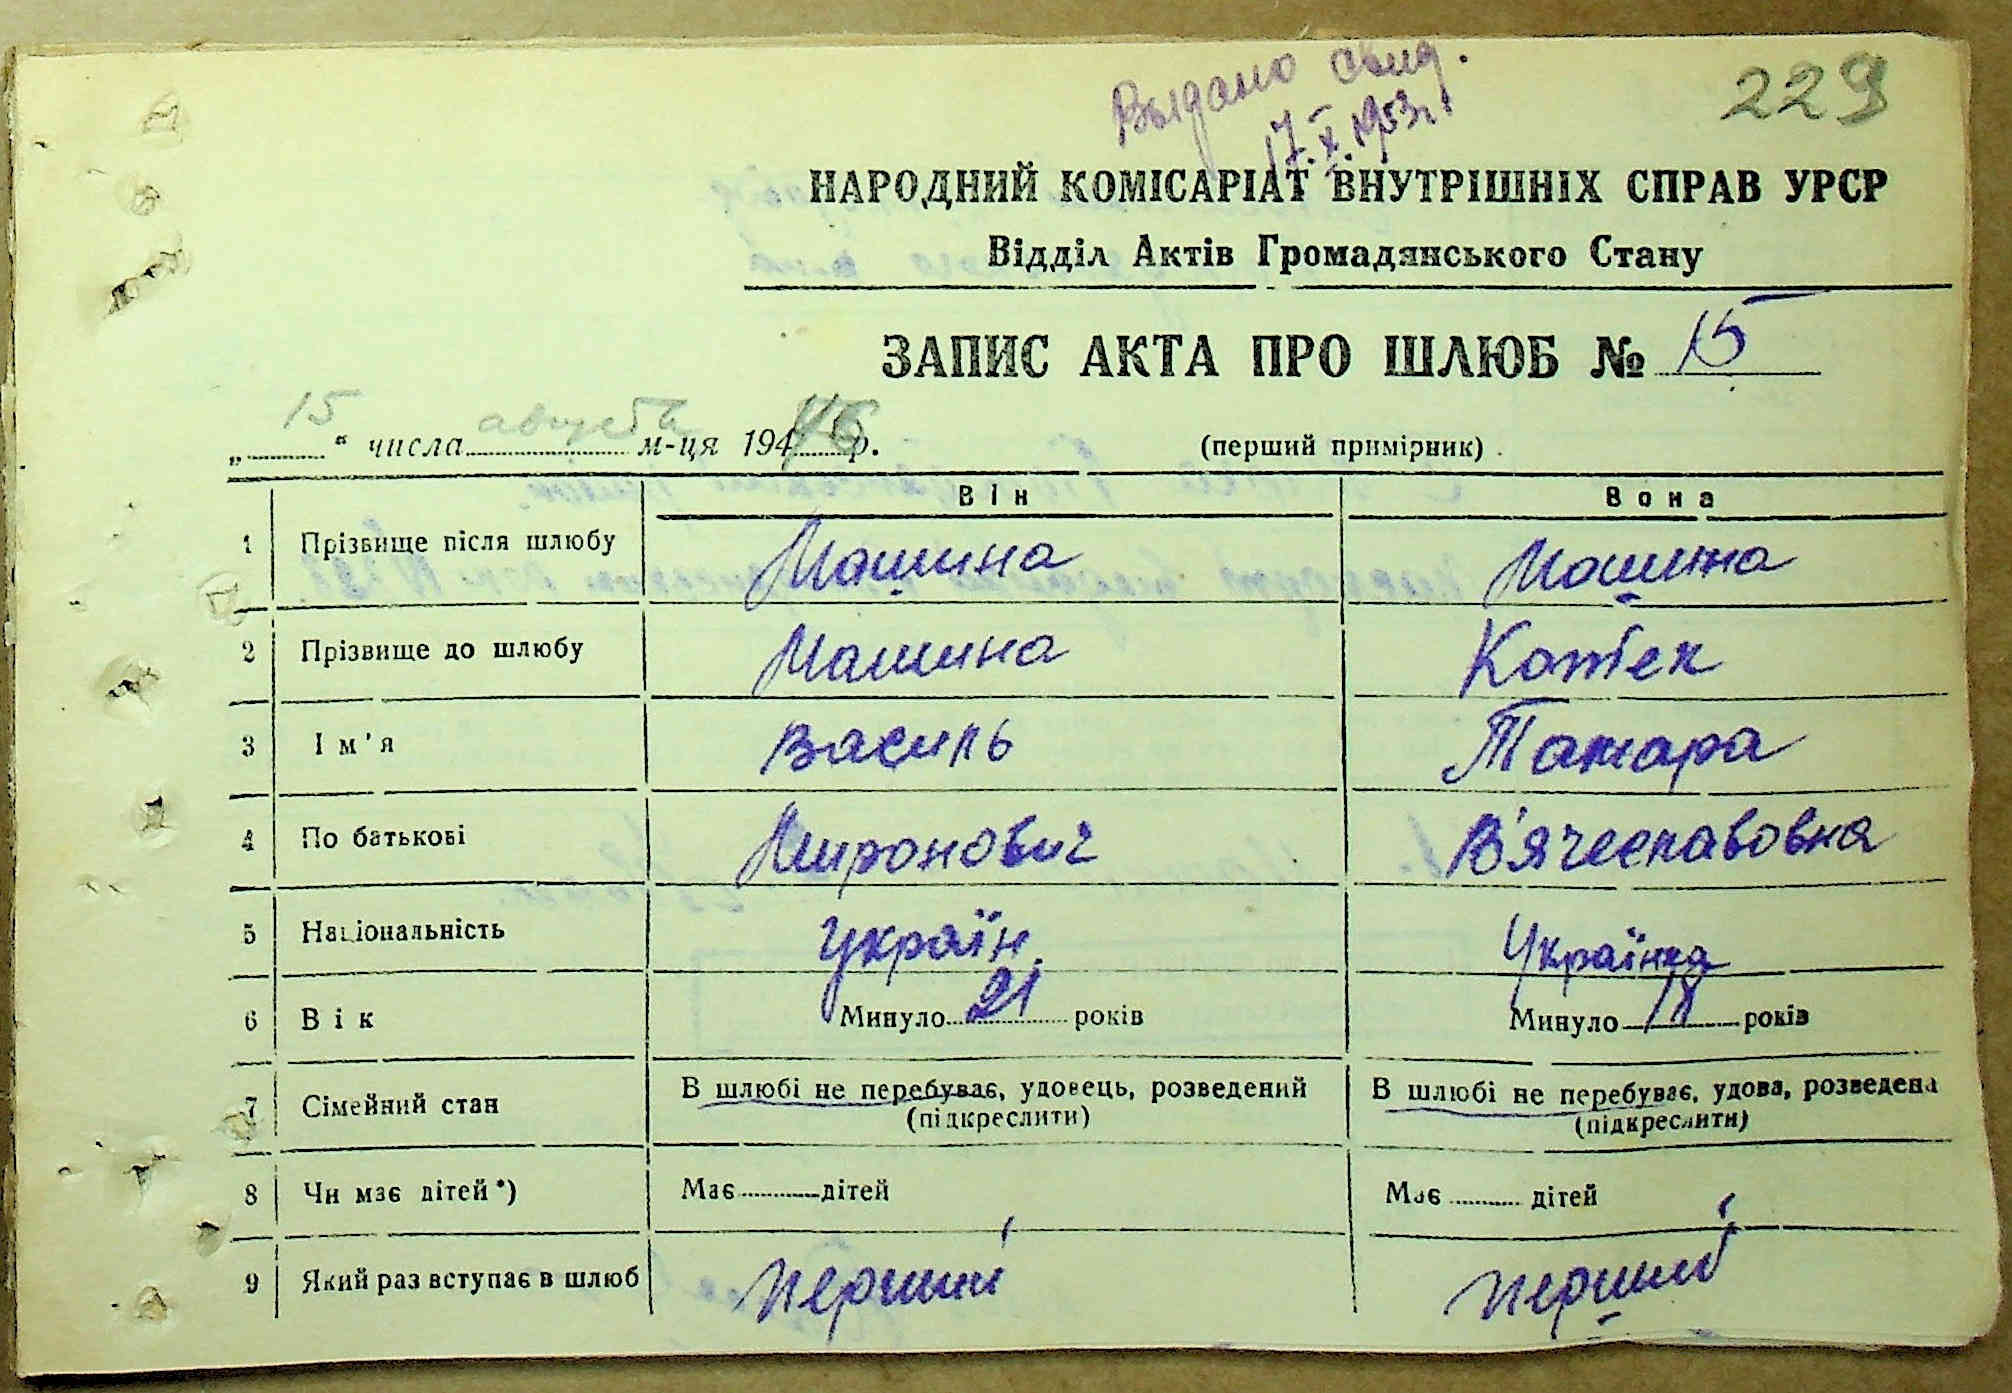 Выдано свид.
17.X.1953г.
229
НАРОДНИЙ КОМІСАРІАТ ВНУТРІШНІХ СПРАВ УРСР
Відділ Актів Громадянського Стану
ЗАПИС АКТА ПРО ШЛЮБ № 15
„15“ числа августа м-ця 1946 р. (перший примірник)
Він Вона
1 Прізвище після шлюбу Машина Машина
2 Прізвище до шлюбу Машина Котек
3 Ім'я Василь Тамара
4 По батькові Миронович В'ячеславовна
5 Національність україн. Українка
6 Вік Минуло 21 років Минуло 18 років
7 Сімейний стан В шлюбі не перебуває, удовець, розведений В шлюбі не перебуває, удова, розведена
(підкреслити) (підкреслити)
8 Чи має дітей*) Має дітей Має дітей
9 Який раз вступає в шлюб перший перший